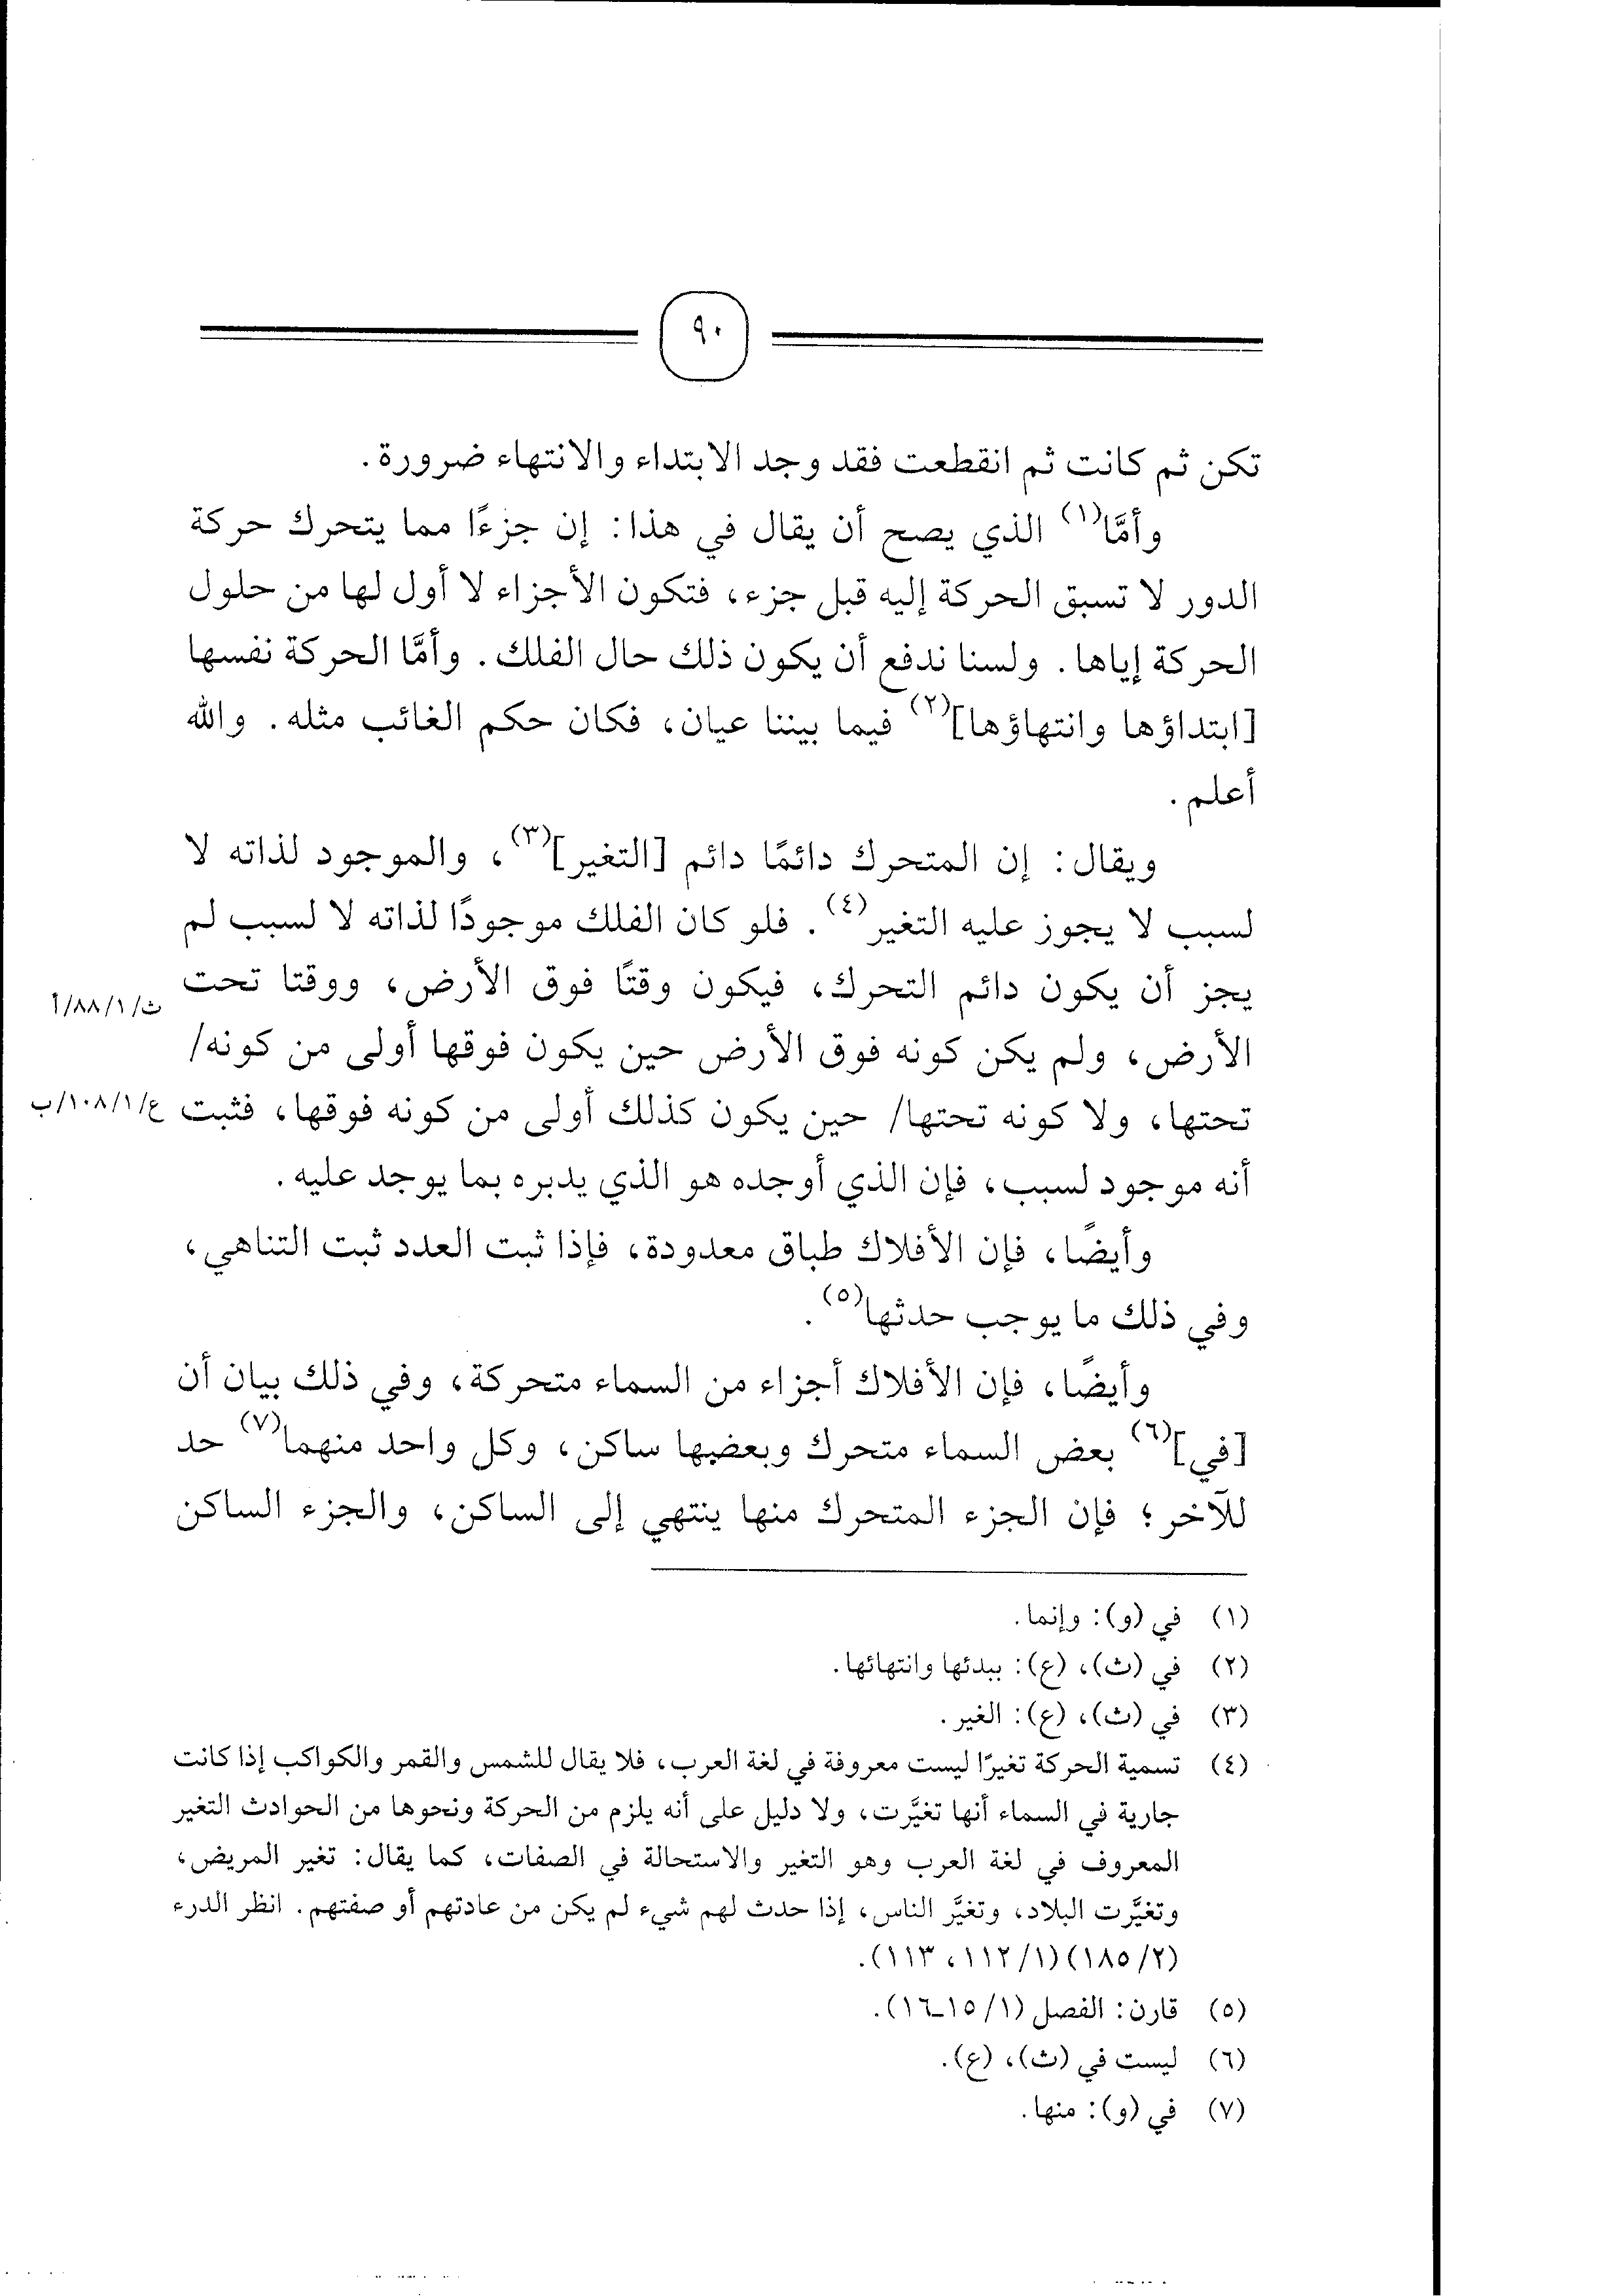 ٩٠
تكن ثم كانت ثم انقطعت فقد وجد الابتداء والانتهاء ضرورة.
وأمَّا(١) الذي يصح أن يقال في هذا: إن جزءًا مما يتحرك حركة
الدور لا تسبق الحركة إليه قبل جزء، فتكون الأجزاء لا أول لها من حلول
الحركة إياها. ولسنا ندفع أن يكون ذلك حال الفلك. وأمَّا الحركة نفسها
[ابتداؤها وانتهاؤها](٢) فيما بيننا عيان، فكان حكم الغائب مثله. والله
أعلم.
ويقال: إن المتحرك دائمًا دائم [التغير](٣)، والموجود لذاته لا
لسبب لا يجوز عليه التغير(٤). فلو كان الفلك موجودًا لذاته لا لسبب لم
يجز أن يكون دائم التحرك، فيكون وقتًا فوق الأرض، ووقتا تحت
ث/٨٨/١/أ
الأرض، ولم يكن كونه فوق الأرض حين يكون فوقها أولى من كونه/
تحتها، ولا كونه تحتها/ حين يكون كذلك أولى من كونه فوقها، فثبت
ع/١٠٨/١/ب
أنه موجود لسبب، فإن الذي أوجده هو الذي يدبره بما يوجد عليه.
وأيضًا، فإن الأفلاك طباق معدودة، فإذا ثبت العدد ثبت التناهي،
وفي ذلك ما يوجب حدثها(٥).
وأيضًا، فإن الأفلاك أجزاء من السماء متحركة، وفي ذلك بيان أن
[في](٦) بعض السماء متحرك وبعضها ساكن، وكل واحد منهما(٧) حد
للآخر؛ فإن الجزء المتحرك منها ينتهي إلى الساكن، والجزء الساكن
(١) في (و): وإنما.
(٢) في (ث)، (ع): ببدئها وانتهائها.
(٣) في (ث)، (ع): الغير.
(٤) تسمية الحركة تغيرًا ليست معروفة في لغة العرب، فلا يقال للشمس والقمر والكواكب إذا كانت
جارية في السماء أنها تغيَّرت، ولا دليل على أنه يلزم من الحركة ونحوها من الحوادث التغير
المعروف في لغة العرب وهو التغير والاستحالة في الصفات، كما يقال: تغير المريض،
وتغيَّرت البلاد، وتغيَّر الناس، إذا حدث لهم شيء لم يكن من عادتهم أو صفتهم. انظر الدرء
(١٨٥/٢)(١١٢/١، ١١٣).
(٥) قارن: الفصل (١/ ١٥ـ١٦).
(٦) ليست في (ث)، (ع).
(٧) في (و): منها.